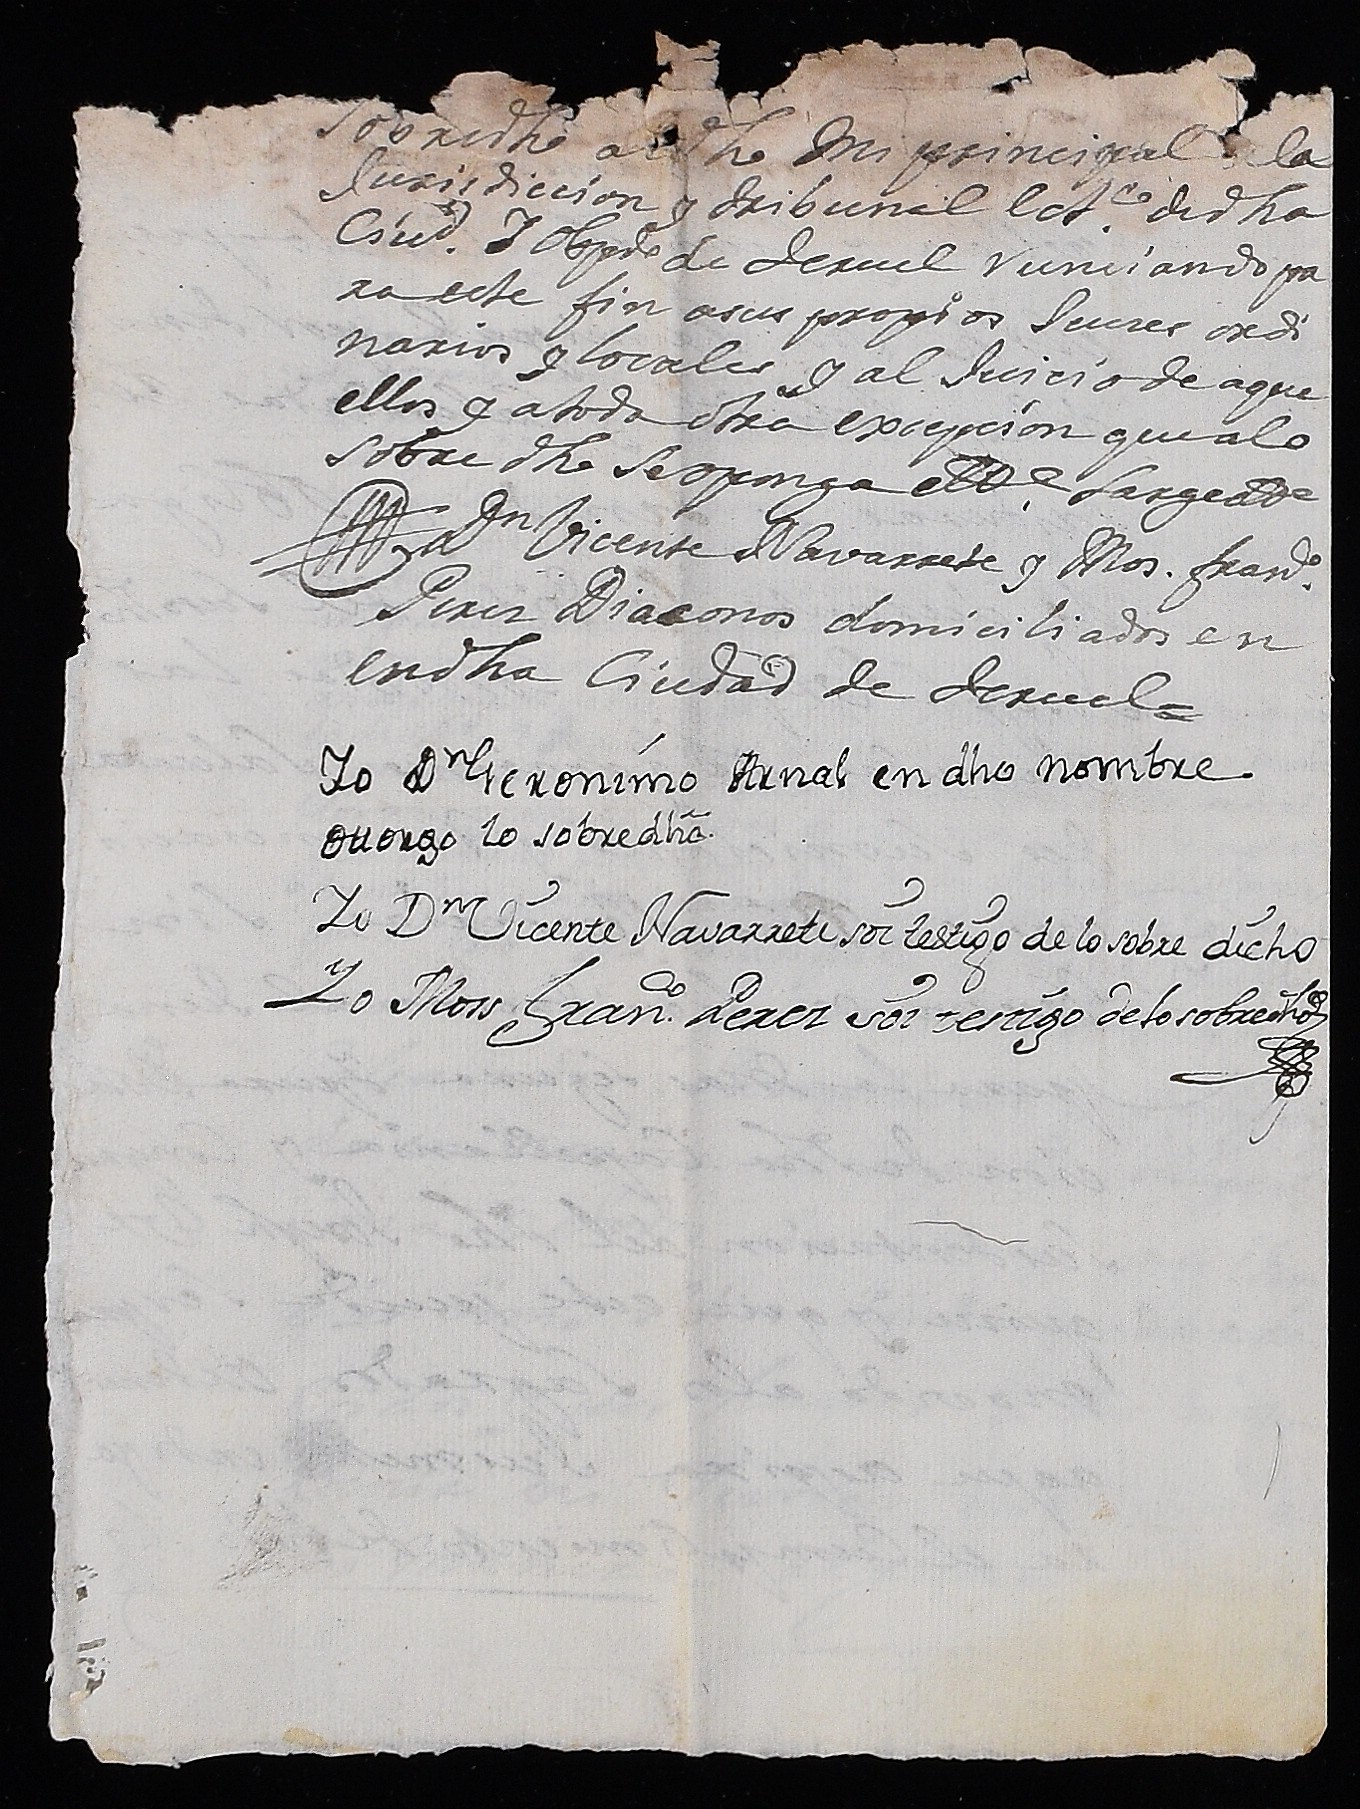 sobredho al dho Mi principal a la
Jurisdiccion y tribunal Ect.co de dha
Ciud. Y Obpdo de Teruel renunciando pa
ra este fin asus propios Jueces ordi
narios y locales y al Juicio de aque
ellos y a toda otra excepcion que alo
sobre dho se oponga ett.a large tte
Dn Vicente Navarrete y Mos. franco.
Perez Diaconos domiciliados en
endha Ciudad de Teruel=
Yo Dn Geronimo Arnal en dho nombre
ottorgo lo sobredho.
Yo Dn Vicente Navarrete soi testigo de lo sobre dicho
Yo Moss Franco. Perez soi testigo de lo sobredho